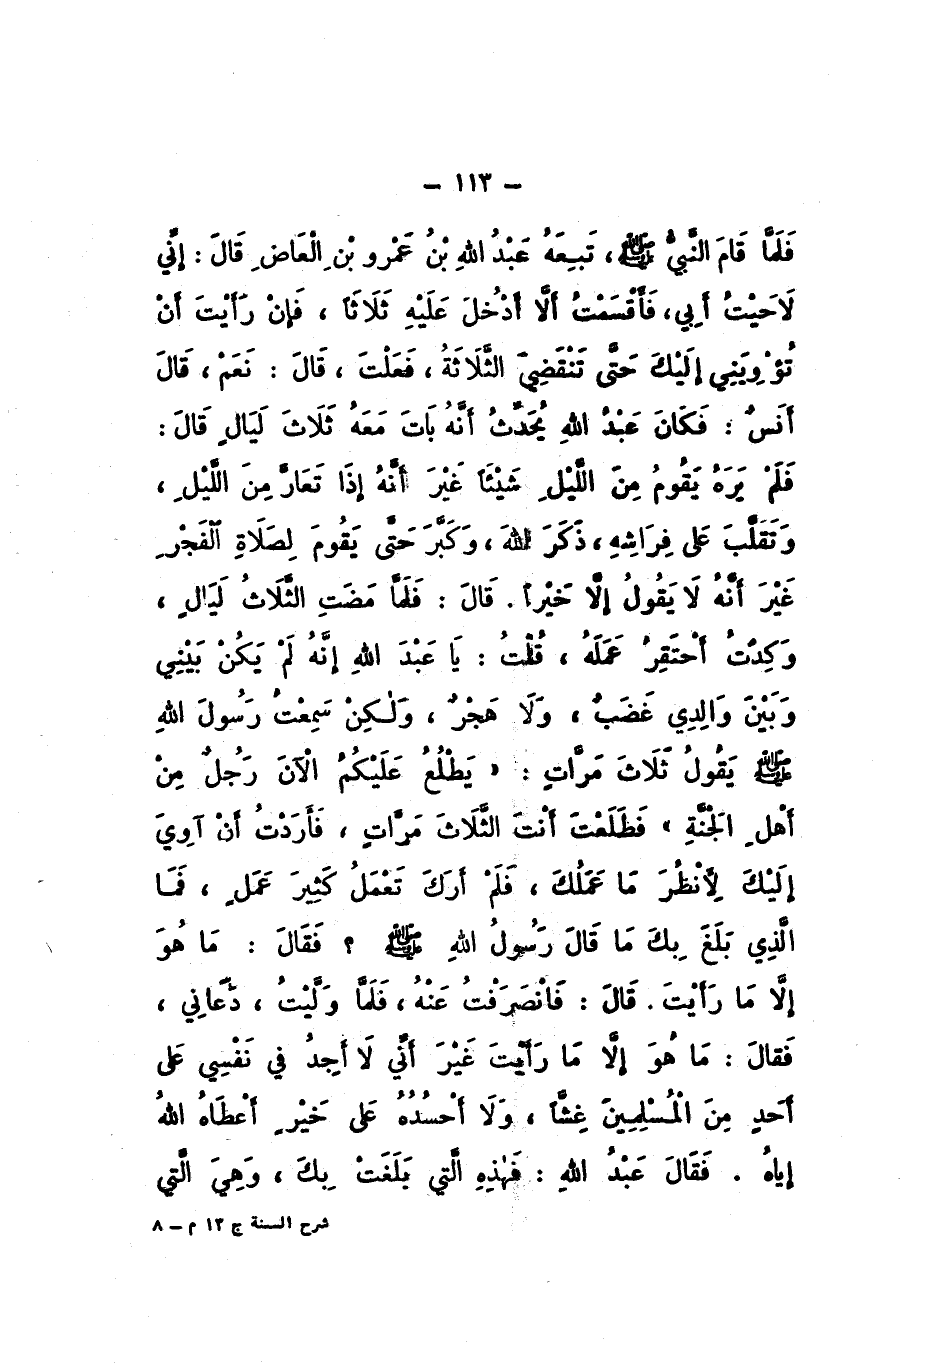 – ١١٣ –
فَلَمَّا قَامَ النَّبِيُّ ﷺ، تَبِعَهُ عَبْدُ اللهِ بْنُ عَمْرِو بْنِ الْعَاصِ قَالَ : إِنِّي
لَاحَيْتُ أَبِي، فَأَقْسَمْتُ أَلَّا أَدْخُلَ عَلَيْهِ ثَلَاثَاً ، فَإِنْ رَأَيْتَ أَنْ
تُؤْوِيَنِي إِلَيْكَ حَتَّى تَنْقَضِيَ الثَّلَاثَةُ ، فَعَلْتَ ، قَالَ : نَعَمْ ، قَالَ
أَنَسٌ : فَكَانَ عَبْدُ اللهِ يُحَدِّثُ أَنَّهُ بَاتَ مَعَهُ ثَلَاثَ لَيَالٍ قَالَ :
فَلَمْ يَرَهُ يَقُومُ مِنَ اللَّيْلِ شَيْئَاً غَيْرَ أَنَّهُ إِذَا تَعَارَّ مِنَ اللَّيْلِ ،
وَتَقَلَّبَ عَلَى فِرَاشِهِ ، ذَكَرَ اللهَ ، وَكَبَّرَ حَتَّى يَقُومَ لِصَلَاةِ الْفَجْرِ
غَيْرَ أَنَّهُ لَا يَقُولُ إِلَّا خَيْراً . قَالَ : فَلَمَّا مَضَتِ الثَّلَاثُ لَيَالٍ ،
وَكِدْتُ أَحْتَقِرُ عَمَلَهُ ، قُلْتُ : يَا عَبْدَ اللهِ إِنَّهُ لَمْ يَكُنْ بَيْنِي
وَبَيْنَ وَالِدِي غَضَبٌ ، وَلَا هَجْرٌ ، وَلٰكِنْ سَمِعْتُ رَسُولَ اللهِ
ﷺ يَقُولُ ثَلَاثَ مَرَّاتٍ : « يَطْلُعُ عَلَيْكُمُ الْآنَ رَجُلٌ مِنْ
أَهْلِ الْجَنَّةِ » فَطَلَعْتَ أَنْتَ الثَّلَاثَ مَرَّاتٍ ، فَأَرَدْتُ أَنْ آوِيَ
إِلَيْكَ لِأَنْظُرَ مَا عَمَلُكَ ، فَلَمْ أَرَكَ تَعْمَلُ كَثِيرَ عَمَلٍ ، فَمَا
الَّذِي بَلَغَ بِكَ مَا قَالَ رَسُولُ اللهِ ﷺ ؟ فَقَالَ : مَا هُوَ
إِلَّا مَا رَأَيْتَ . قَالَ : فَانْصَرَفْتُ عَنْهُ ، فَلَمَّا وَلَّيْتُ ، دَعَانِي ،
فَقَالَ : مَا هُوَ إِلَّا مَا رَأَيْتَ غَيْرَ أَنِّي لَا أَجِدُ فِي نَفْسِي عَلَى
أَحَدٍ مِنَ الْمُسْلِمِينَ غِشَّاً ، وَلَا أَحْسُدُهُ عَلَى خَيْرٍ أَعْطَاهُ اللهُ
إِيَّاهُ . فَقَالَ عَبْدُ اللهِ : فَهٰذِهِ الَّتِي بَلَغَتْ بِكَ ، وَهِيَ الَّتِي
شرح السنة ج ١٣ م – ٨